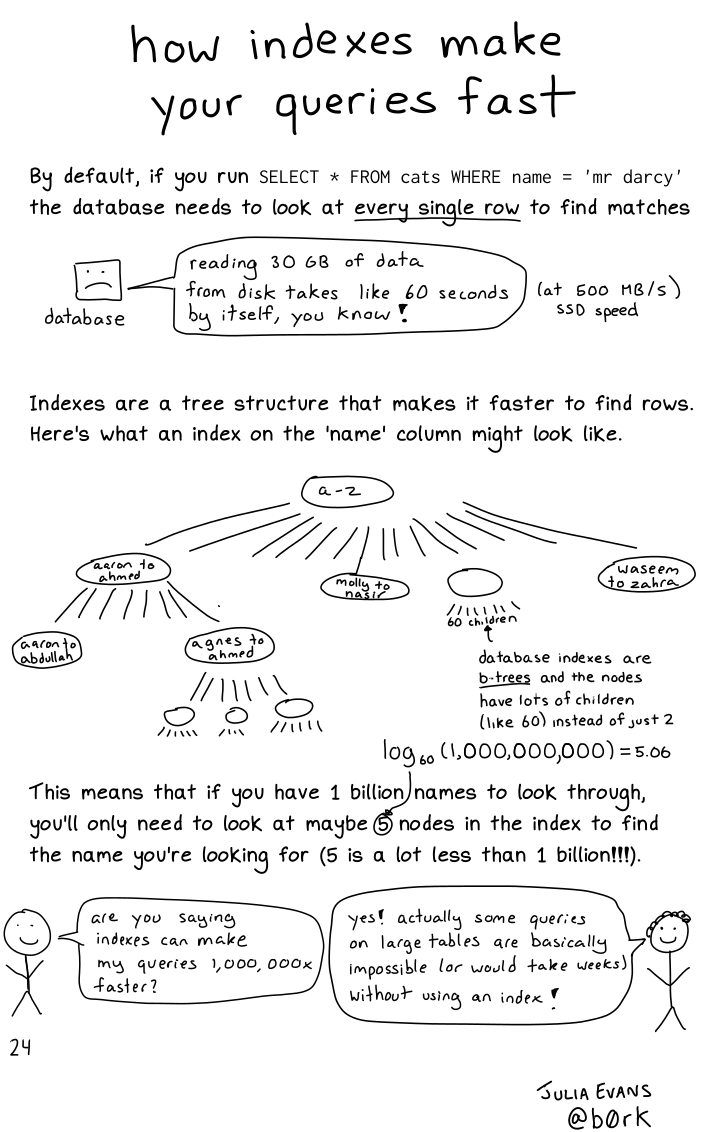 how indexes make
your queries fast
By default, if you run SELECT * FROM cats WHERE name = 'mr darcy'
the database needs to look at every single row to find matches
database
reading 30 GB of data
from disk takes like 60 seconds
by itself, you know!
(at 500 MB/s)
SSD speed
Indexes are a tree structure that makes it faster to find rows.
Here's what an index on the 'name' column might look like.
a-z
aaron to
ahmed
molly to
nasir
60 children
waseem
to zahra
aaron to
abdullah
agnes to
ahmed
database indexes are
b-trees and the nodes
have lots of children
(like 60) instead of just 2
log60(1,000,000,000) = 5.06
This means that if you have 1 billion names to look through,
you'll only need to look at maybe 5 nodes in the index to find
the name you're looking for (5 is a lot less than 1 billion!!!).
are you saying
indexes can make
my queries 1,000,000x
faster?
yes! actually some queries
on large tables are basically
impossible (or would take weeks)
without using an index!
24
JULIA EVANS
@b0rk